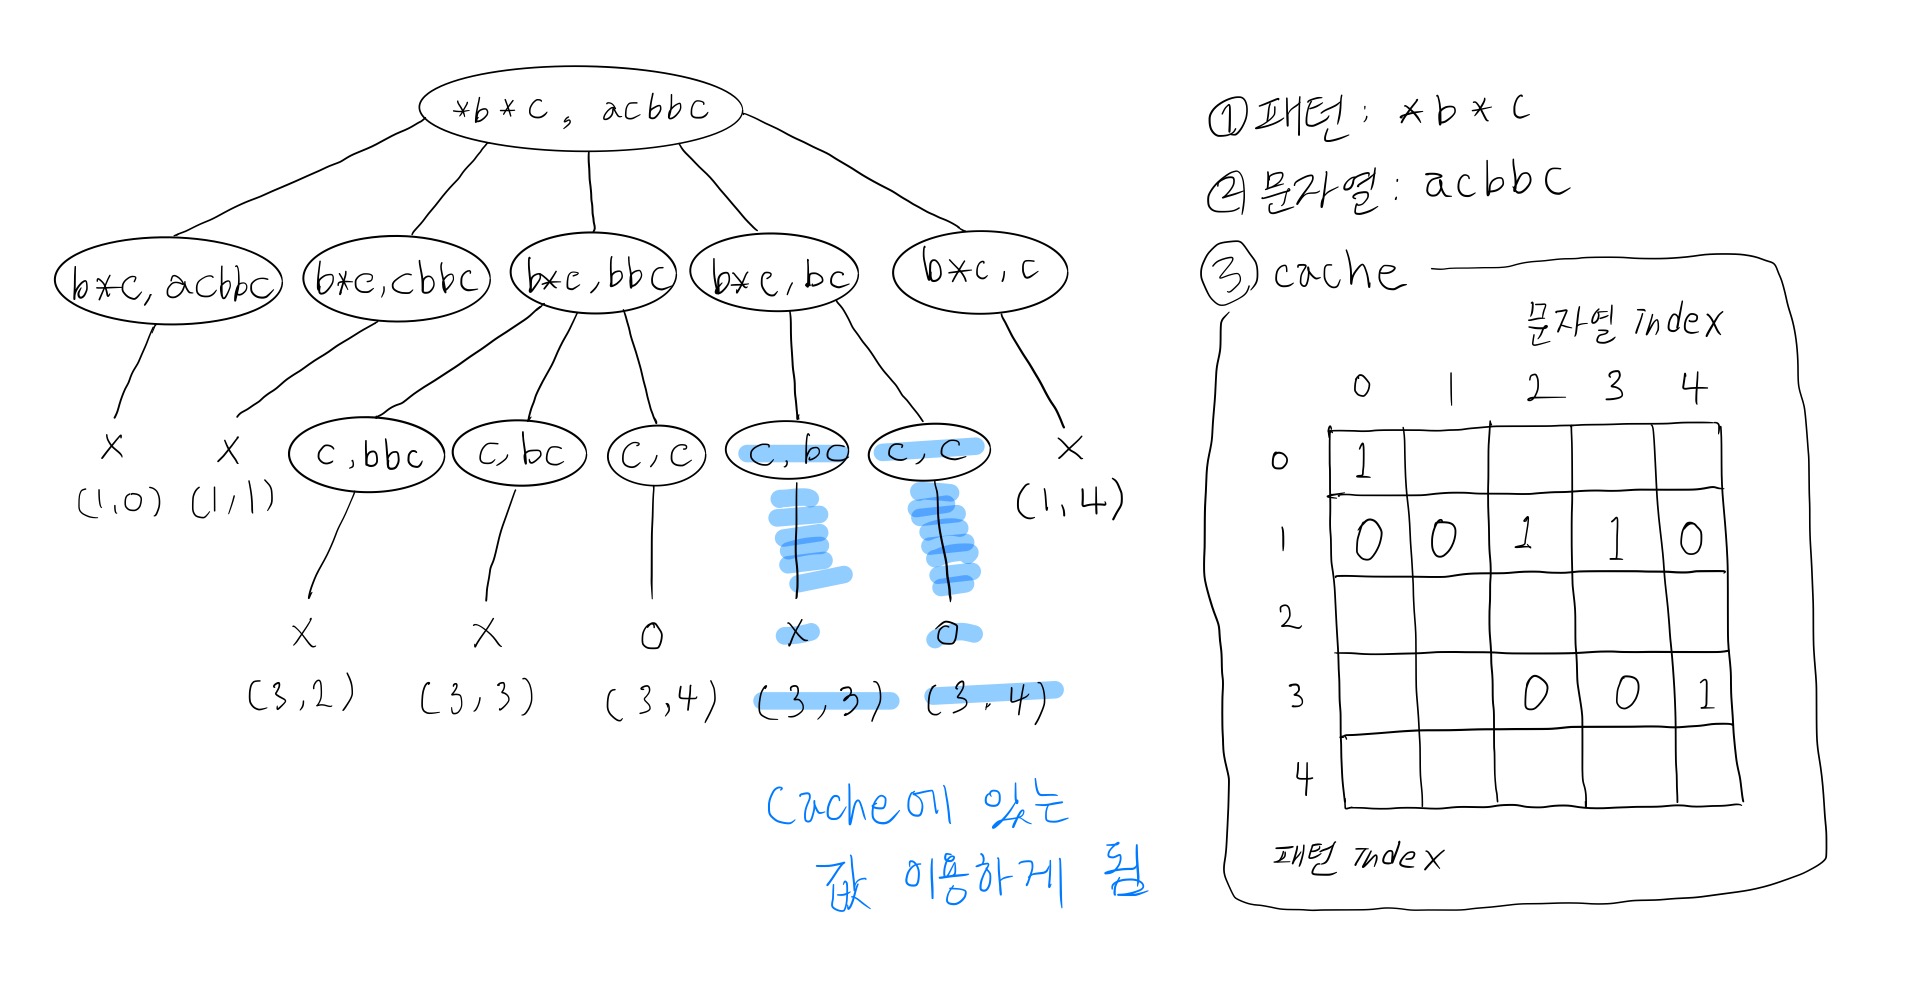 *b*c, acbbc
b*c, acbbc
b*c, cbbc
b*c, bbc
b*c, bc
b*c, c
x
(1,0)
x
(1,1)
c, bbc
c, bc
c, c
c, bc
c, c
x
(1,4)
x
x
o
x
o
(3,2)
(3,3)
(3,4)
(3,3)
(3.4)
Cache에 있는
값 이용하게 됨
① 패턴: *b*c
② 문자열: acbbc
③ cache
문자열 index
0 1 2 3 4
0 1
1 0 0 1 1 0
2
3 0 0 1
4
패턴 index